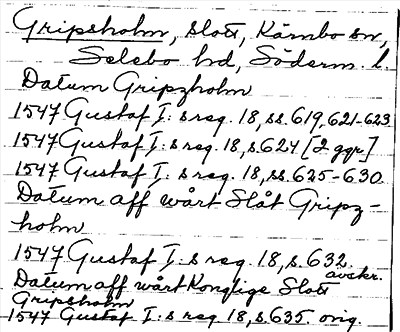 Gripsholm, slott, Kärnbo sn,
Selebo hd, Söderm. l.
Datum Gripzholm
1547 Gustaf I:s reg. 18, ss. 619, 621-623
1547 Gustaf I:s reg. 18, s. 624 [2 ggr]
1547 Gustaf I:s reg. 18, ss. 625-630.
Datum aff wårt Slåt Gripz-
holm
1547 Gustaf I:s reg. 18, s. 632.
avskr.
Datum aff wårt Konglige Slott
Gripsholm
1547 Gustaf I:s reg. 18, s. 635. orig.